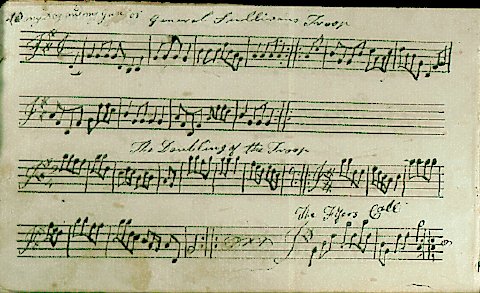 of General Sullivans Troop
The Doubling of the Troop
The Fifers Call